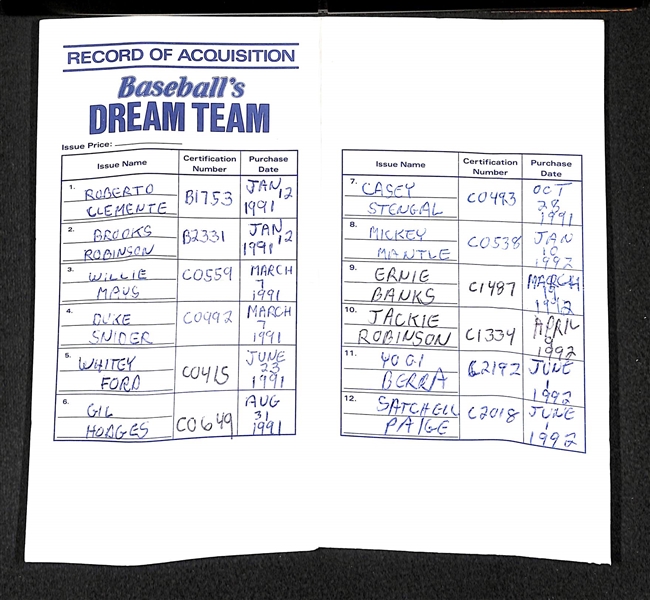 RECORD OF ACQUISITION
Baseball's
DREAM TEAM
Issue Price:
Issue Name Certification Number Purchase Date
1. ROBERTO CLEMENTE B1753 JAN 12 1991
2. BROOKS ROBINSON B2331 JAN 12 1991
3. WILLIE MAYS C0559 MARCH 7 1991
4. DUKE SNIDER C0492 MARCH 7 1991
5. WHITEY FORD C0415 JUNE 23 1991
6. GIL HODGES C0649 AUG 31 1991
Issue Name Certification Number Purchase Date
7. CASEY STENGAL C0493 OCT 28 1991
8. MICKEY MANTLE C0538 JAN 10 1992
9. ERNIE BANKS C1487 MARCH 1992
10. JACKIE ROBINSON C1334 APRIL 1992
11. YOGI BERRA C2192 JUNE 1 1992
12. SATCHELL PAIGE C2018 JUNE 1 1992